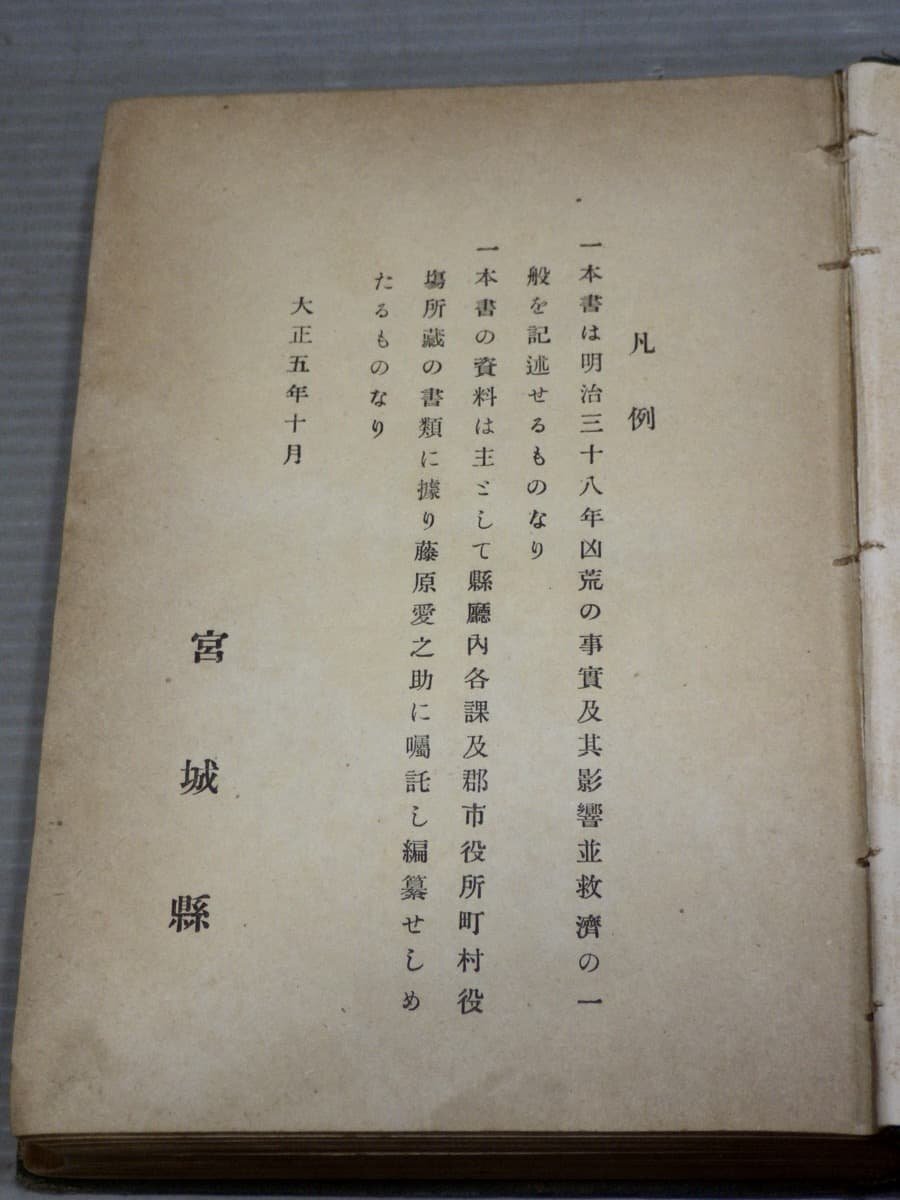 凡例
一本書は明治三十八年凶荒の事實及其影響並救濟の一
般を記述せるものなり
一本書の資料は主として縣廳內各課及郡市役所町村役
塲所藏の書類に據り藤原愛之助に囑託し編纂せしめ
たるものなり
大正五年十月
宮城縣